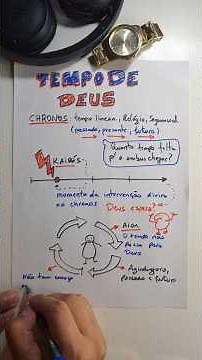 TEMPO DE
DEUS
CHRONOS: tempo linear, Relógio, Sequencial
(passado, presente, futuro)
Quanto tempo falta
p/ o onibus chegar?
KAIRÓS
momento da intervenção divina
no chronos
Deus
Aion
O tempo não
Deus
passado e futuro
Não tem